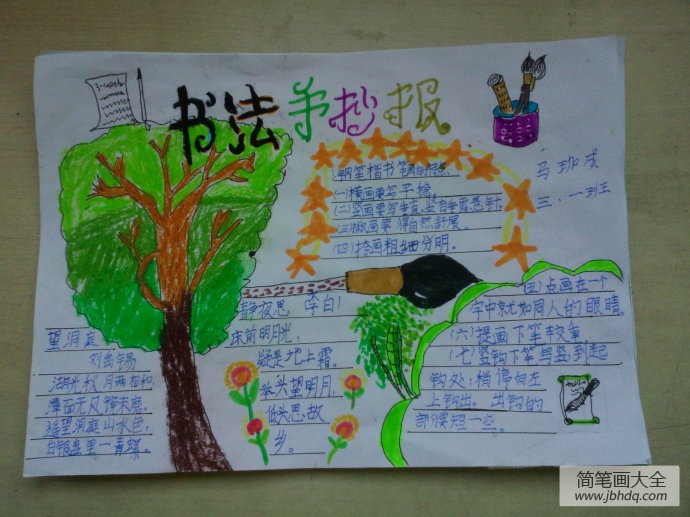 书法手抄报
马珈成
三.一班
钢笔楷书笔画的特点
(一)横画要写平稳。
(二)竖画要写垂直,竖有垂露悬针。
(三)撇画要 得自然舒展
(四)捺画粗细分明。
(五)点画在一个
字中就如同人的眼睛。
(六)提画下笔较重
(七)竖钩下笔写竖到起
钩处;稍停向左
上钩出。出钩的
部分要短一些。
静夜思 李白
床前明月光,
疑是地上霜。
举头望明月,
低头思故
乡。
望洞庭
刘禹锡
湖光秋月两相和,
潭面无风镜未磨。
遥望洞庭山水色,
白银盘里一青螺。
简笔画大全
www.jbhdq.com